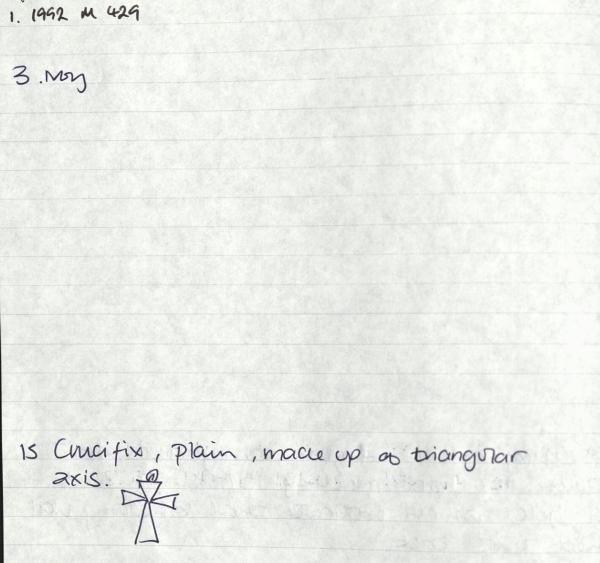 1. 1992 M 429
3. Moy
15 Crucifix, plain, made up of triangular
axis.